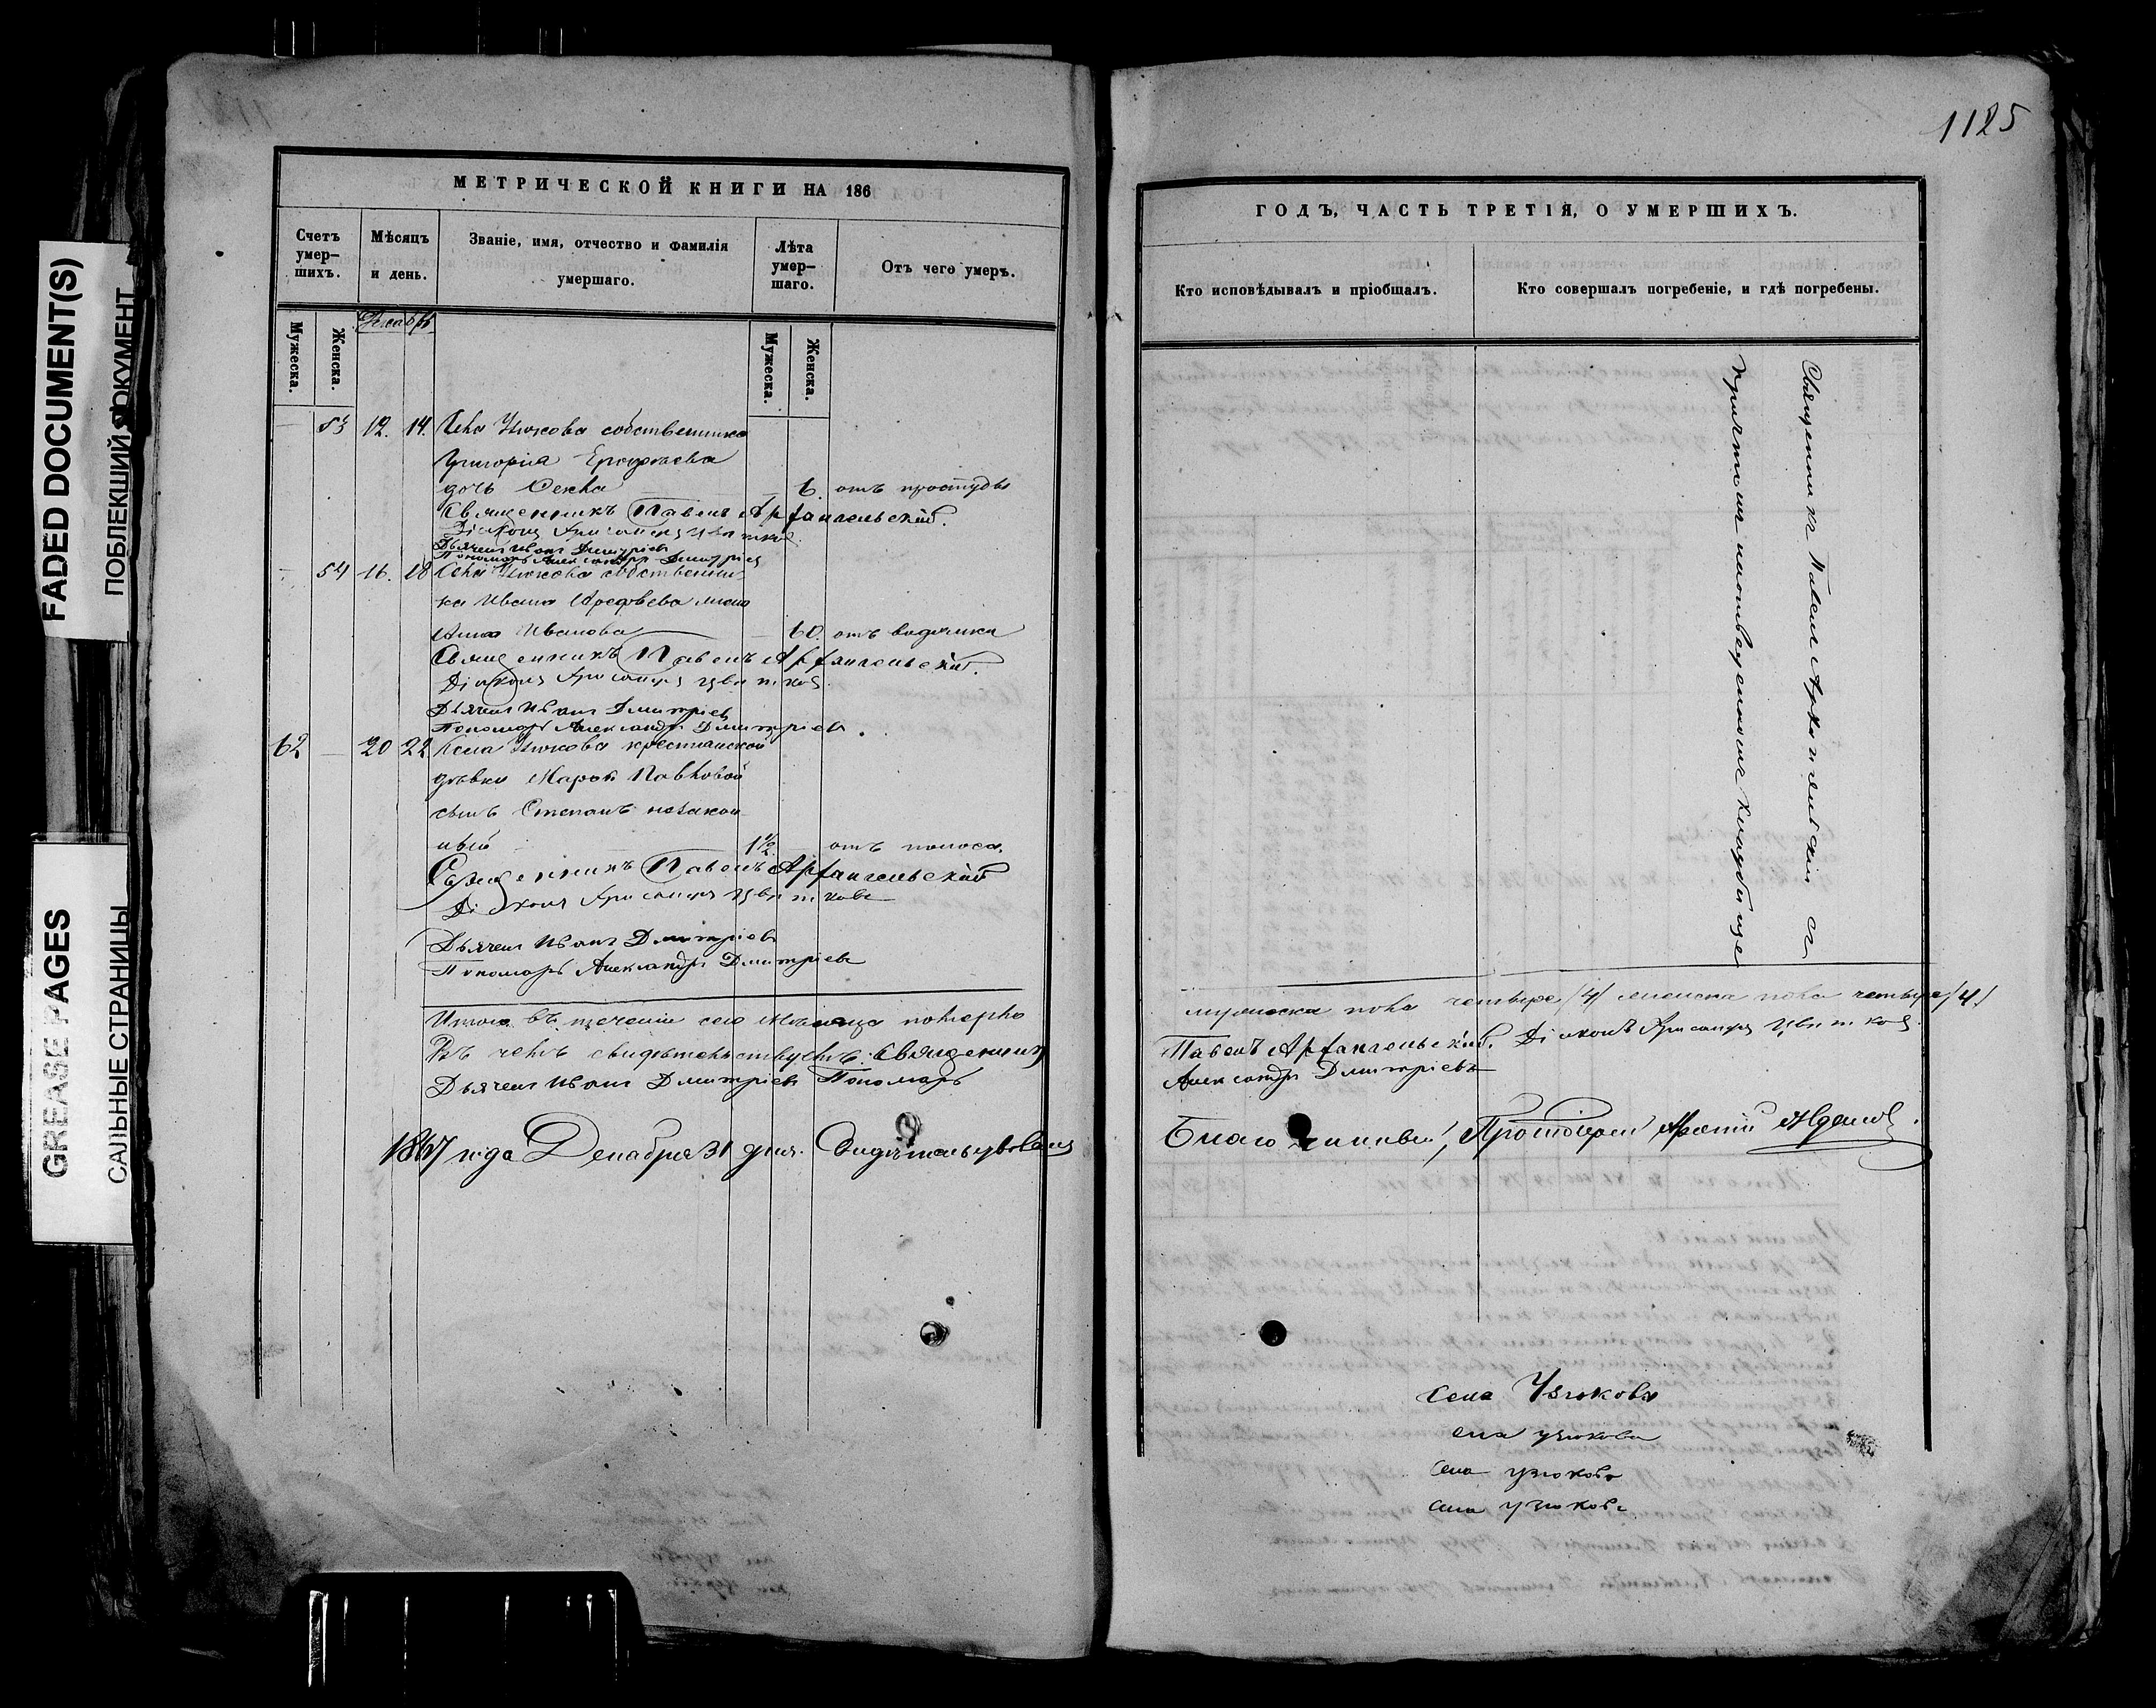 FADED DOCUMENT(S)
ПОБЛЕКШИЙ ДОКУМЕНТ
GREASE PAGES
САЛЬНЫЕ СТРАНИЦЫ
МЕТРИЧЕСКОЙ КНИГИ НА 186
Счетъ умер-
шихъ.
Мѣсяцъ
и день.
Званіе, имя, отчество и фамилія
умершаго.
Лѣта
умер-
шаго.
Отъ чего умеръ.
Мужеска.
Женска.
Декабрь
Мужеска.
Женска.
53 12. 14. Села Узюкова собственника
Григорія
дочь 6. отъ простуды
Священникъ Павелъ Архангельскій.
Діаконъ Цвѣтковъ
Дьячекъ Иванъ Дмитріевъ
Пономарь Александръ Дмитріевъ
54 16. 18 Села Узюкова собственни-
ка Ивана жена
Анна Иванова 60. отъ
Священникъ Павелъ Архангельскій.
Діаконъ Цвѣтковъ
Дьячекъ Иванъ Дмитріевъ
Пономарь Александръ Дмитріевъ.
62 — 20 22 Села Узюкова крестьянской
дѣвки Павловой
сынъ Степанъ незакон-
ный 1½ отъ поноса.
Священникъ Павелъ Архангельскій
Діаконъ Цвѣтковъ
Дьячекъ Иванъ Дмитріевъ
Пономарь Александръ Дмитріевъ
Итого въ теченіи сего мѣсяца померло
Въ чемъ свидѣтельствуемъ: Священникъ
Дьячекъ Иванъ Дмитріевъ Пономарь
1867 года Декабря 31 дня. Свидѣтельствовалъ
1125
ГОДЪ, ЧАСТЬ ТРЕТІЯ, О УМЕРШИХЪ.
Кто исповѣдывалъ и пріобщалъ.
Кто совершалъ погребеніе, и гдѣ погребены.
Священникъ Павелъ Архангельскій съ
причтомъ на отведенномъ кладбище
мужеска пола четыре /4/ женска пола четыре /4/
Павелъ Архангельскій. Діаконъ Цвѣтковъ.
Александръ Дмитріевъ
Благочинный, Протоіерей
села Узюкова
села узюкова
села узюкова
села узюкова